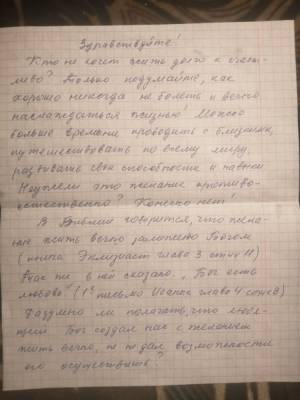 Здравствуйте!
Кто не хочет жить долго и счаст-
ливо? Только подумайте, как
хорошо никогда не болеть и вечно
наслаждаться жизнью! Можно
больше времени проводить с близкими,
путешествовать по всему миру,
развивать свои способности и навыки
Неужели это желание противо-
естественно? Конечно нет!
В Библии говорится, что жела-
ние жить вечно заложено Богом
(книга Экклезиаст глава 3 стих 11)
Так же в ней сказано, „Бог есть
любовь" (1ᵉ письмо Иоанна глава 4 стих 8)
Разумно ли полагать, что любя-
щий Бог создал нас с желанием
жить вечно, но не дал возможности
его осуществить?